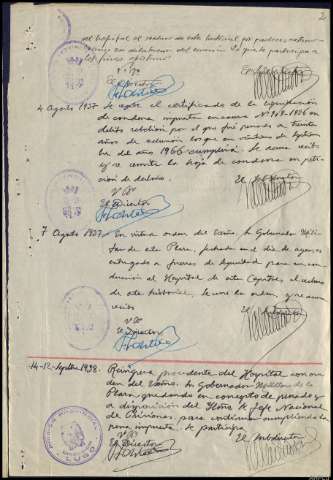 del hospital el recluso de este historial por padecer
los fines oportunos
Vº Bº
El Director
4 Agosto 1937 Se recibe el certificado de la liquidación
de condena impuesta en causa Nº 948-1936 en
delito rebelión por el que fué penado a treinta
años de reclusión los que en
bre del año 1966 cumplirá. Se acusa recibo
y se remite la hoja de condena en peti-
ción de destino.
Vº Bº
El Director
El Subdirector
7 Agosto 1937. En virtud orden del Excmo. Sr. Gobernador Mili-
tar de esta Plaza, fechada en el dia de ayer, es
entregado a fuerzas de Seguridad para su con-
ducción al Hospital de esta Capital, el recluso
de este historial. Se une la orden, y se acusa
recibo.
Vº Bº
El Director
14-12-Septbre 1938. Reingresa procedente del Hospital con or-
den del Excmo. Sr. Gobernador Militar de la
Plaza, quedando en concepto de penado y
a disposición del Iltmo. Sr. Jefe Nacional
de Prisiones para continuar cumpliendo la
pena impuesta. Se participa.
Vº Bº
El Director
El Subdirector
PRISION PROVINCIAL
LUGO